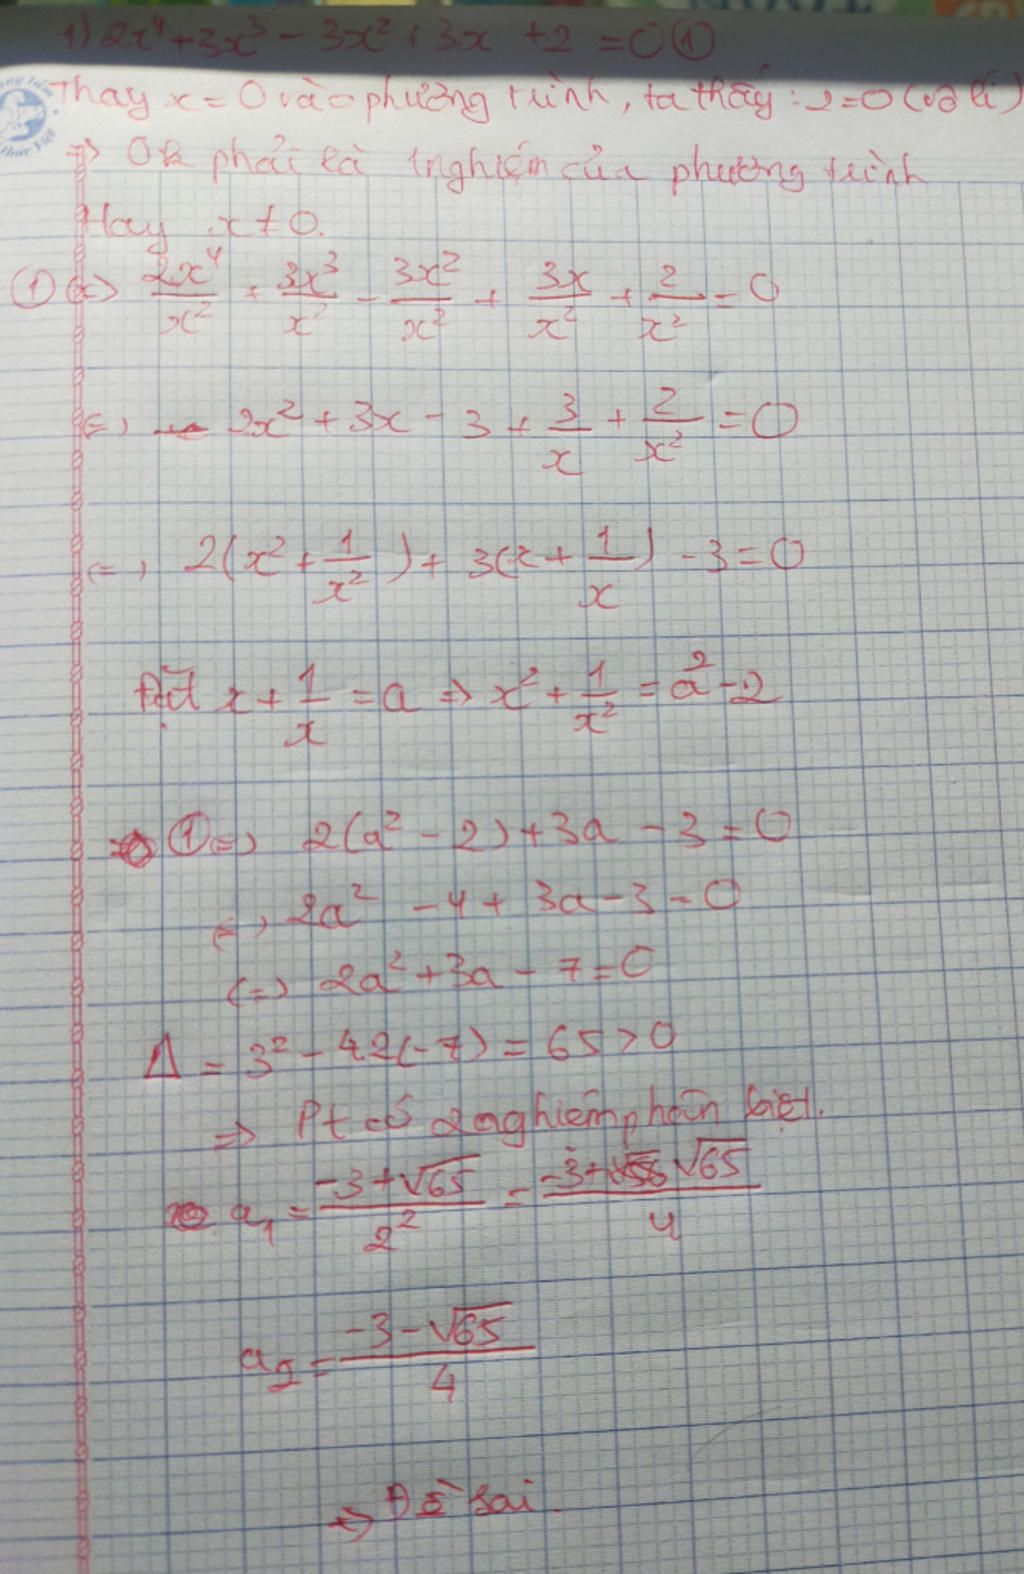 1) 2x⁴ + 3x³ - 3x² + 3x + 2 = 0 ①
Thay x = 0 vào phương trình, ta thấy : 2 = 0 (vô lí)
=> 0 k phải là 1 nghiệm của phương trình
Hay x ≠ 0.
① <=> 2x⁴/x² + 3x³/x² - 3x²/x² + 3x/x² + 2/x² = 0
<=> 2x² + 3x - 3 + 3/x + 2/x² = 0
<=> 2(x² + 1/x²) + 3(x + 1/x) - 3 = 0
Đặt x + 1/x = a => x² + 1/x² = a² - 2
① <=> 2(a² - 2) + 3a - 3 = 0
<=> 2a² - 4 + 3a - 3 = 0
<=> 2a² + 3a - 7 = 0
Δ = 3² - 4.2(-7) = 65 > 0
=> Pt có 2 nghiệm phân biệt.
a₁ = (-3 + √65)/2² = (-3 + √65)/4
a₂ = (-3 - √65)/4
=> Đề sai